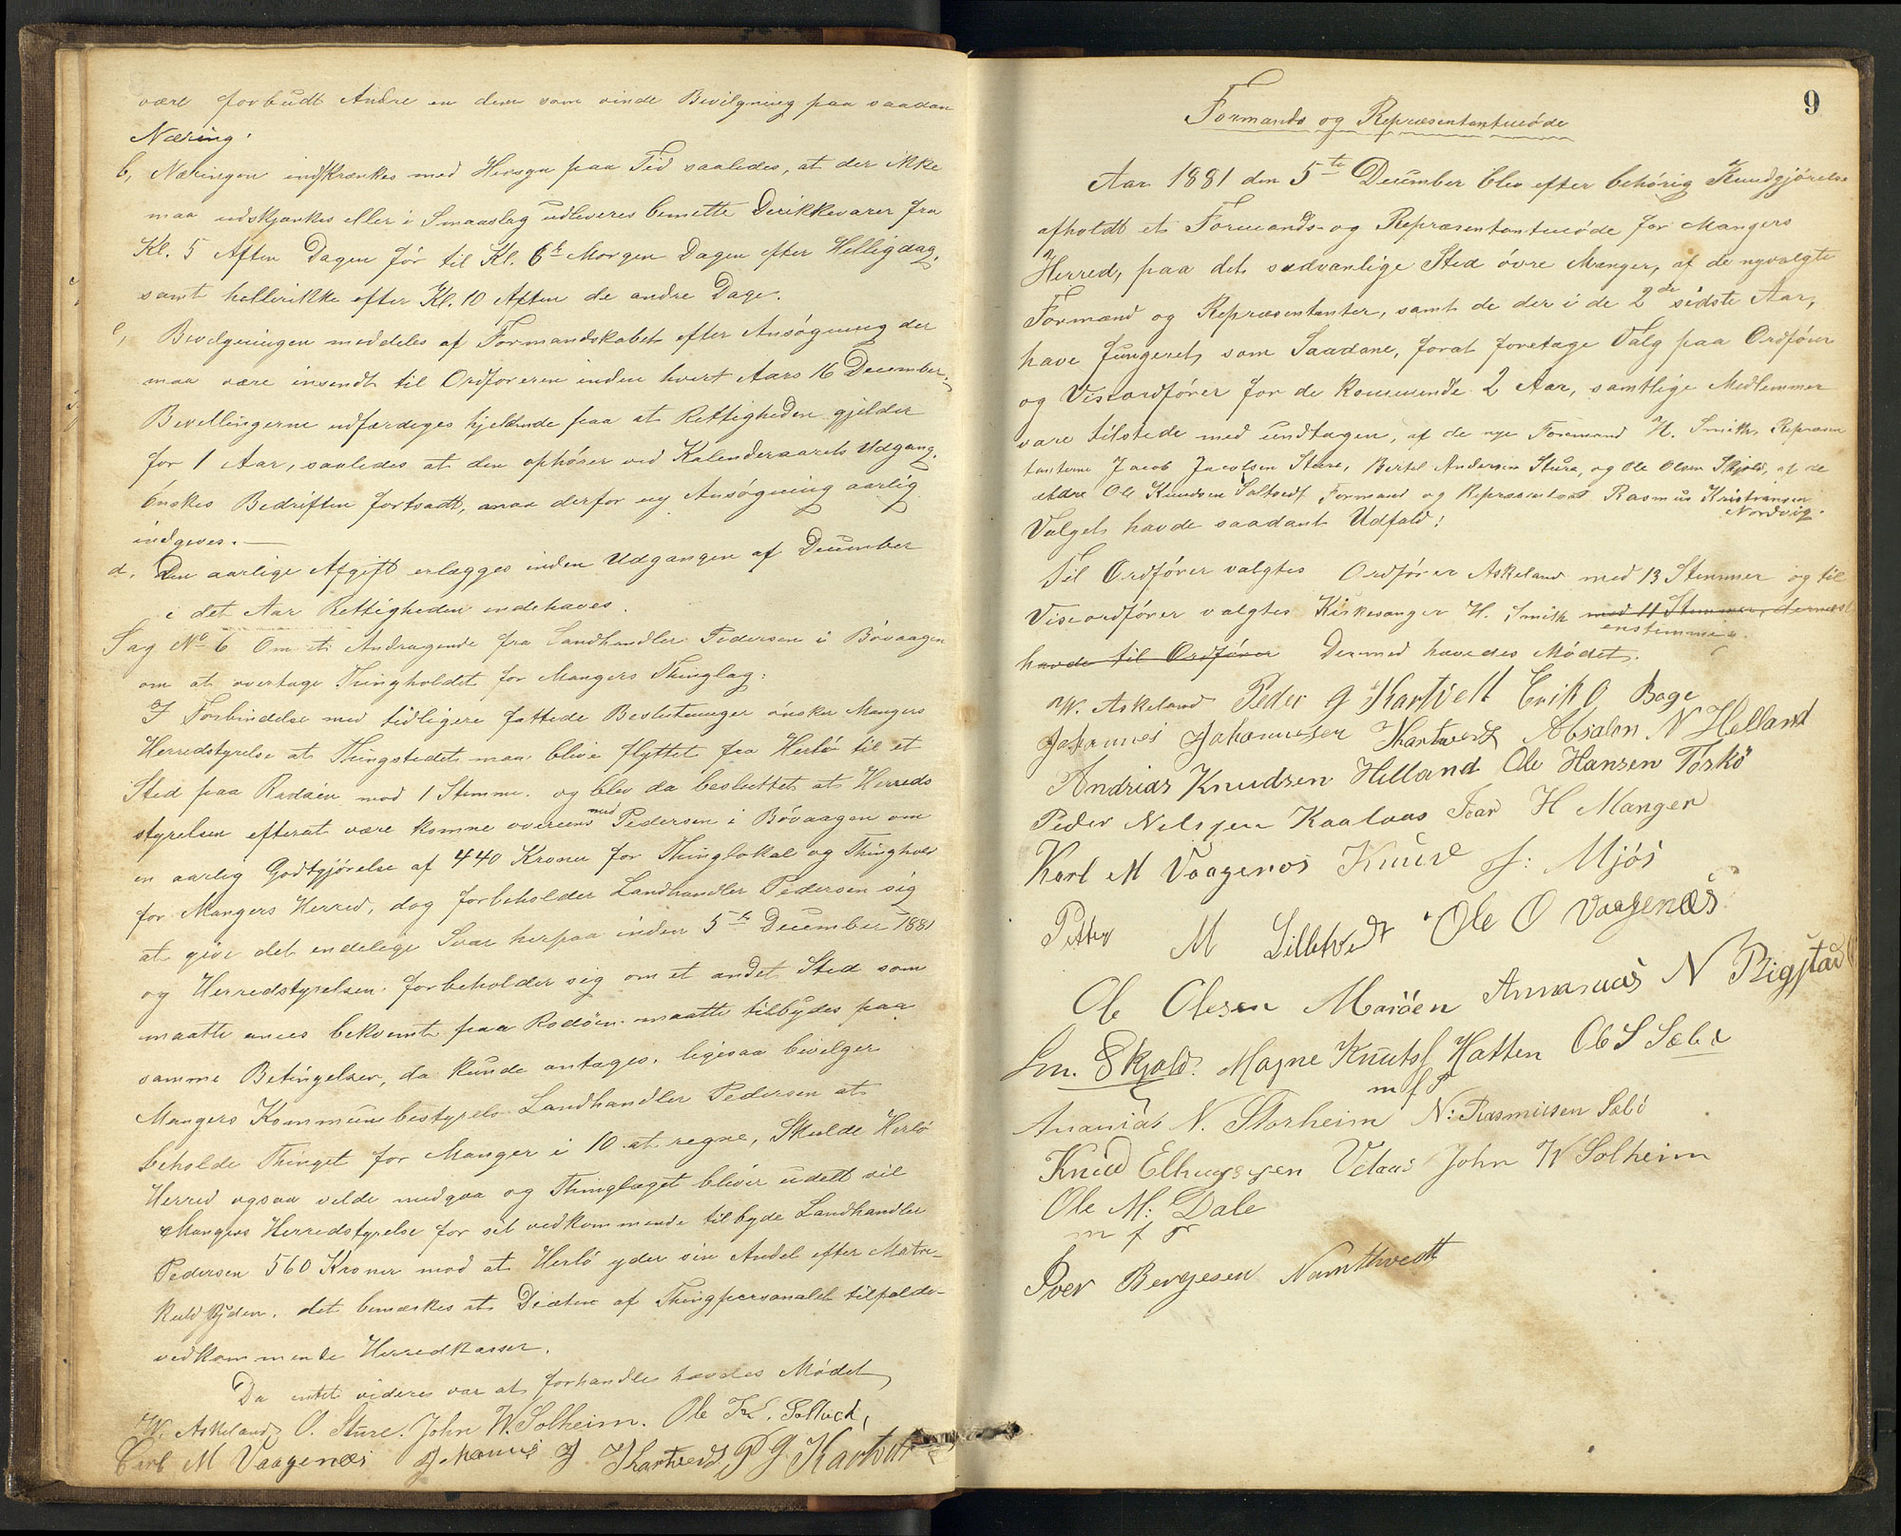 være forbudt Andre en dem som vinde Bevilgning paa saadan
Næring.
b, Næringen indskrænkes med Hensyn paa Tid saaledes, at der ikke
maa udskjænkes eller i Smaaslag udleveres bemette Derikkevarer fra
Kl. 5 Aften Dagen før til Kl. 6 Morgen Dagen efter Helligdag,
samt hellerikke efter Kl. 10 Aften de andre Dage.
c, Bevilgningen meddeles af Formandskabet efter Ansøgning der
maa være insendt til Ordføreren inden hvert Aars 16 December.
Bevillingerne udfærdiges hjeldende paa at Rettigheden gjelder
for 1 Aar, saaledes at den ophører ved Kalenderaarets Udgang.
Ønskes Bedriften fortsadt, maa derfor ny Ansøgning aarlig
indgeves.—
d. Den aarlige Afgift erlægges inden Udgangen af December
i det Aar Rettigheden indehaves.
Sag No 6 Om et Andragende fra Landhandler Pedersen i Bøvaagen
om at overtage Thingholdet for Mangers Thinglag:
I Forbindelse med tidligere fattede Beslutninger ønsker Mangers
Herredstyrelse at Thingstedet maa blive flyttet fra Herlø til et
Sted paa Radøen mod 1 Stemme. og blev da besluttet at Herreds
styrelsen efterat være komne overens med Pedersen i Bøvaagen om
en aarlig Godtgjørelse af 440 Kroner for Thinglokal og Thinghold
for Mangers Herred, dog forbeholder Landhandler Pedersen sig
at give det endelige Svar herpaa inden 5te December 1881
og Herredstyrelsen forbeholder sig om et andet Sted som
maatte ansees bekvemt paa Radøen maatte tilbydes paa
samme Betingelser, da kunde antages. ligesaa bevilger
Mangers Kommunebestyrels Landhandler Pedersen at
beholde Thinget for Manger i 10 at regne, Skulde Herlø
Herred ogsaa velde medgaa og Thinglaget bliver udelt vil
Mangers Herredstyrelse for sit vedkommende tilbyde Landhandler
Pedersen 560 Kroner mod at Herlø yder sin Andel efter Matri-
kulskylden. det bemærkes at Diæten af Thingpersonalet tilfalde
vedkommende Herredkasser.
Da intet videre var at forhandle hævdes Mødet,
W. Askeland O. Sture. John W. Solheim. Ole Kn. Soltved,
Carl M Vaagenæs Johannis J Kartvedt, P G Kartvet
9
Formands og Repræsentantmøde
Aar 1881 den 5te December blev efter behørig Kundgjørelse
afholdt et Formands- og Repræsentantmøde for Mangers
Herred, paa det sædvanlige Sted øvre Manger, af de nyvalgte
Formænd og Repræsentanter, samt de der i de 2de sidste Aar,
have fungeret som Saadane, forat foretage Valg paa Ordfører
og Viseordfører for de kommende 2 Aar, samtlige Medlemmer
vare tilstede med undtagen, af de nye Formænd H. Smith, Repræsen
tanterne Jacob Jacobsen Sture, Bertel Andersen Sture, og Ole Olsen Skjold, af de
eldre Ole Knudsen Soltvedt Formand og Repræsentant Rasmus Kristiansen
Nordvig.
Valget havde saadant Udfald:
Til Ordfører valgtes Ordfører Askeland med 13 Stemmer og til
Viseordfører valgtes Kirkesanger H. Smith med 11 Stemmer, dernæst
enstemmig.
havde til Ordfører Dermed hævedes Mødet.
W. Askeland Peder G Kartvett Erik O, Boge
Johannes Johannesen Kartvedt Absalon N Helland
Andrias Knudsen Helland Ole Hansen Toskø
Peder Nelssen Kaalaas Ivar H Manger
Karl M Vaagenos Knud J: Mjøs
Petter M Lilletvedt Ole O Vaagenæs
Ole Olesen Marøen Annanias N Rigstad
Lm. Skjold. Magne Knuts Hatten Ole S Sæbø
m f P
Ananias N. Storheim N: Rasmussen Sæbø
Knud Elhugssen Vetaas John W Solheim
Ole M: Dale
m f P
Iver Bergesen Namthvedt